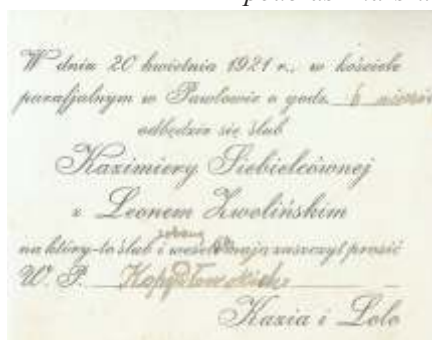 W dniu 20 kwietnia 1921 r., w kościele
parafjalnym w Pawłowie o godz. 6
odbędzie się ślub
Kazimiery Siebielcównej
z Leonem Zwolińskim
na który-to ślub i mają zaszczyt prosić
W. P.
Kazia i Lolo